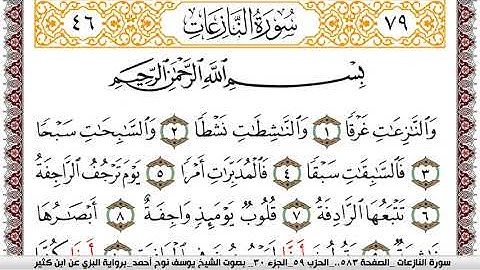 ٧٩ سُورَةُ النَّازِعَاتِ ٤٦
بِسْمِ اللَّهِ الرَّحْمَٰنِ الرَّحِيمِ
وَالنَّازِعَاتِ غَرْقًا ١ وَالنَّاشِطَاتِ نَشْطًا ٢ وَالسَّابِحَاتِ سَبْحًا
٣ فَالسَّابِقَاتِ سَبْقًا ٤ فَالْمُدَبِّرَاتِ أَمْرًا ٥ يَوْمَ تَرْجُفُ الرَّاجِفَةُ
٦ تَتْبَعُهَا الرَّادِفَةُ ٧ قُلُوبٌ يَوْمَئِذٍ وَاجِفَةٌ ٨ أَبْصَارُهَا
سورة النازعات _الصفحة ٥٨٣.._الحزب ٥٩_الجزء ٣٠_ بصوت الشيخ يوسف نوح أحمد_برواية البزي عن ابن كثير